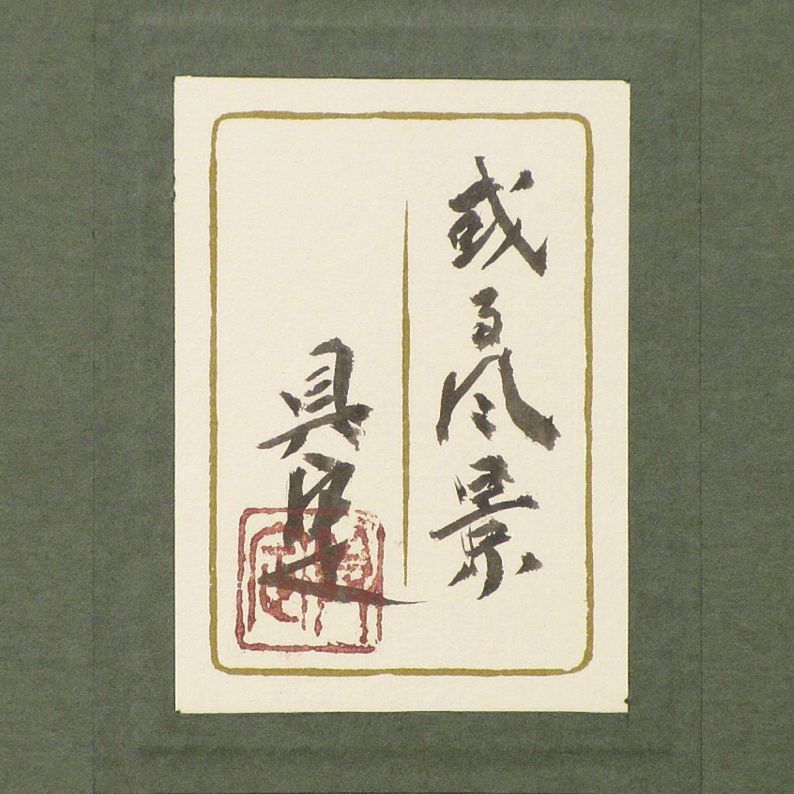 或る風景
具足